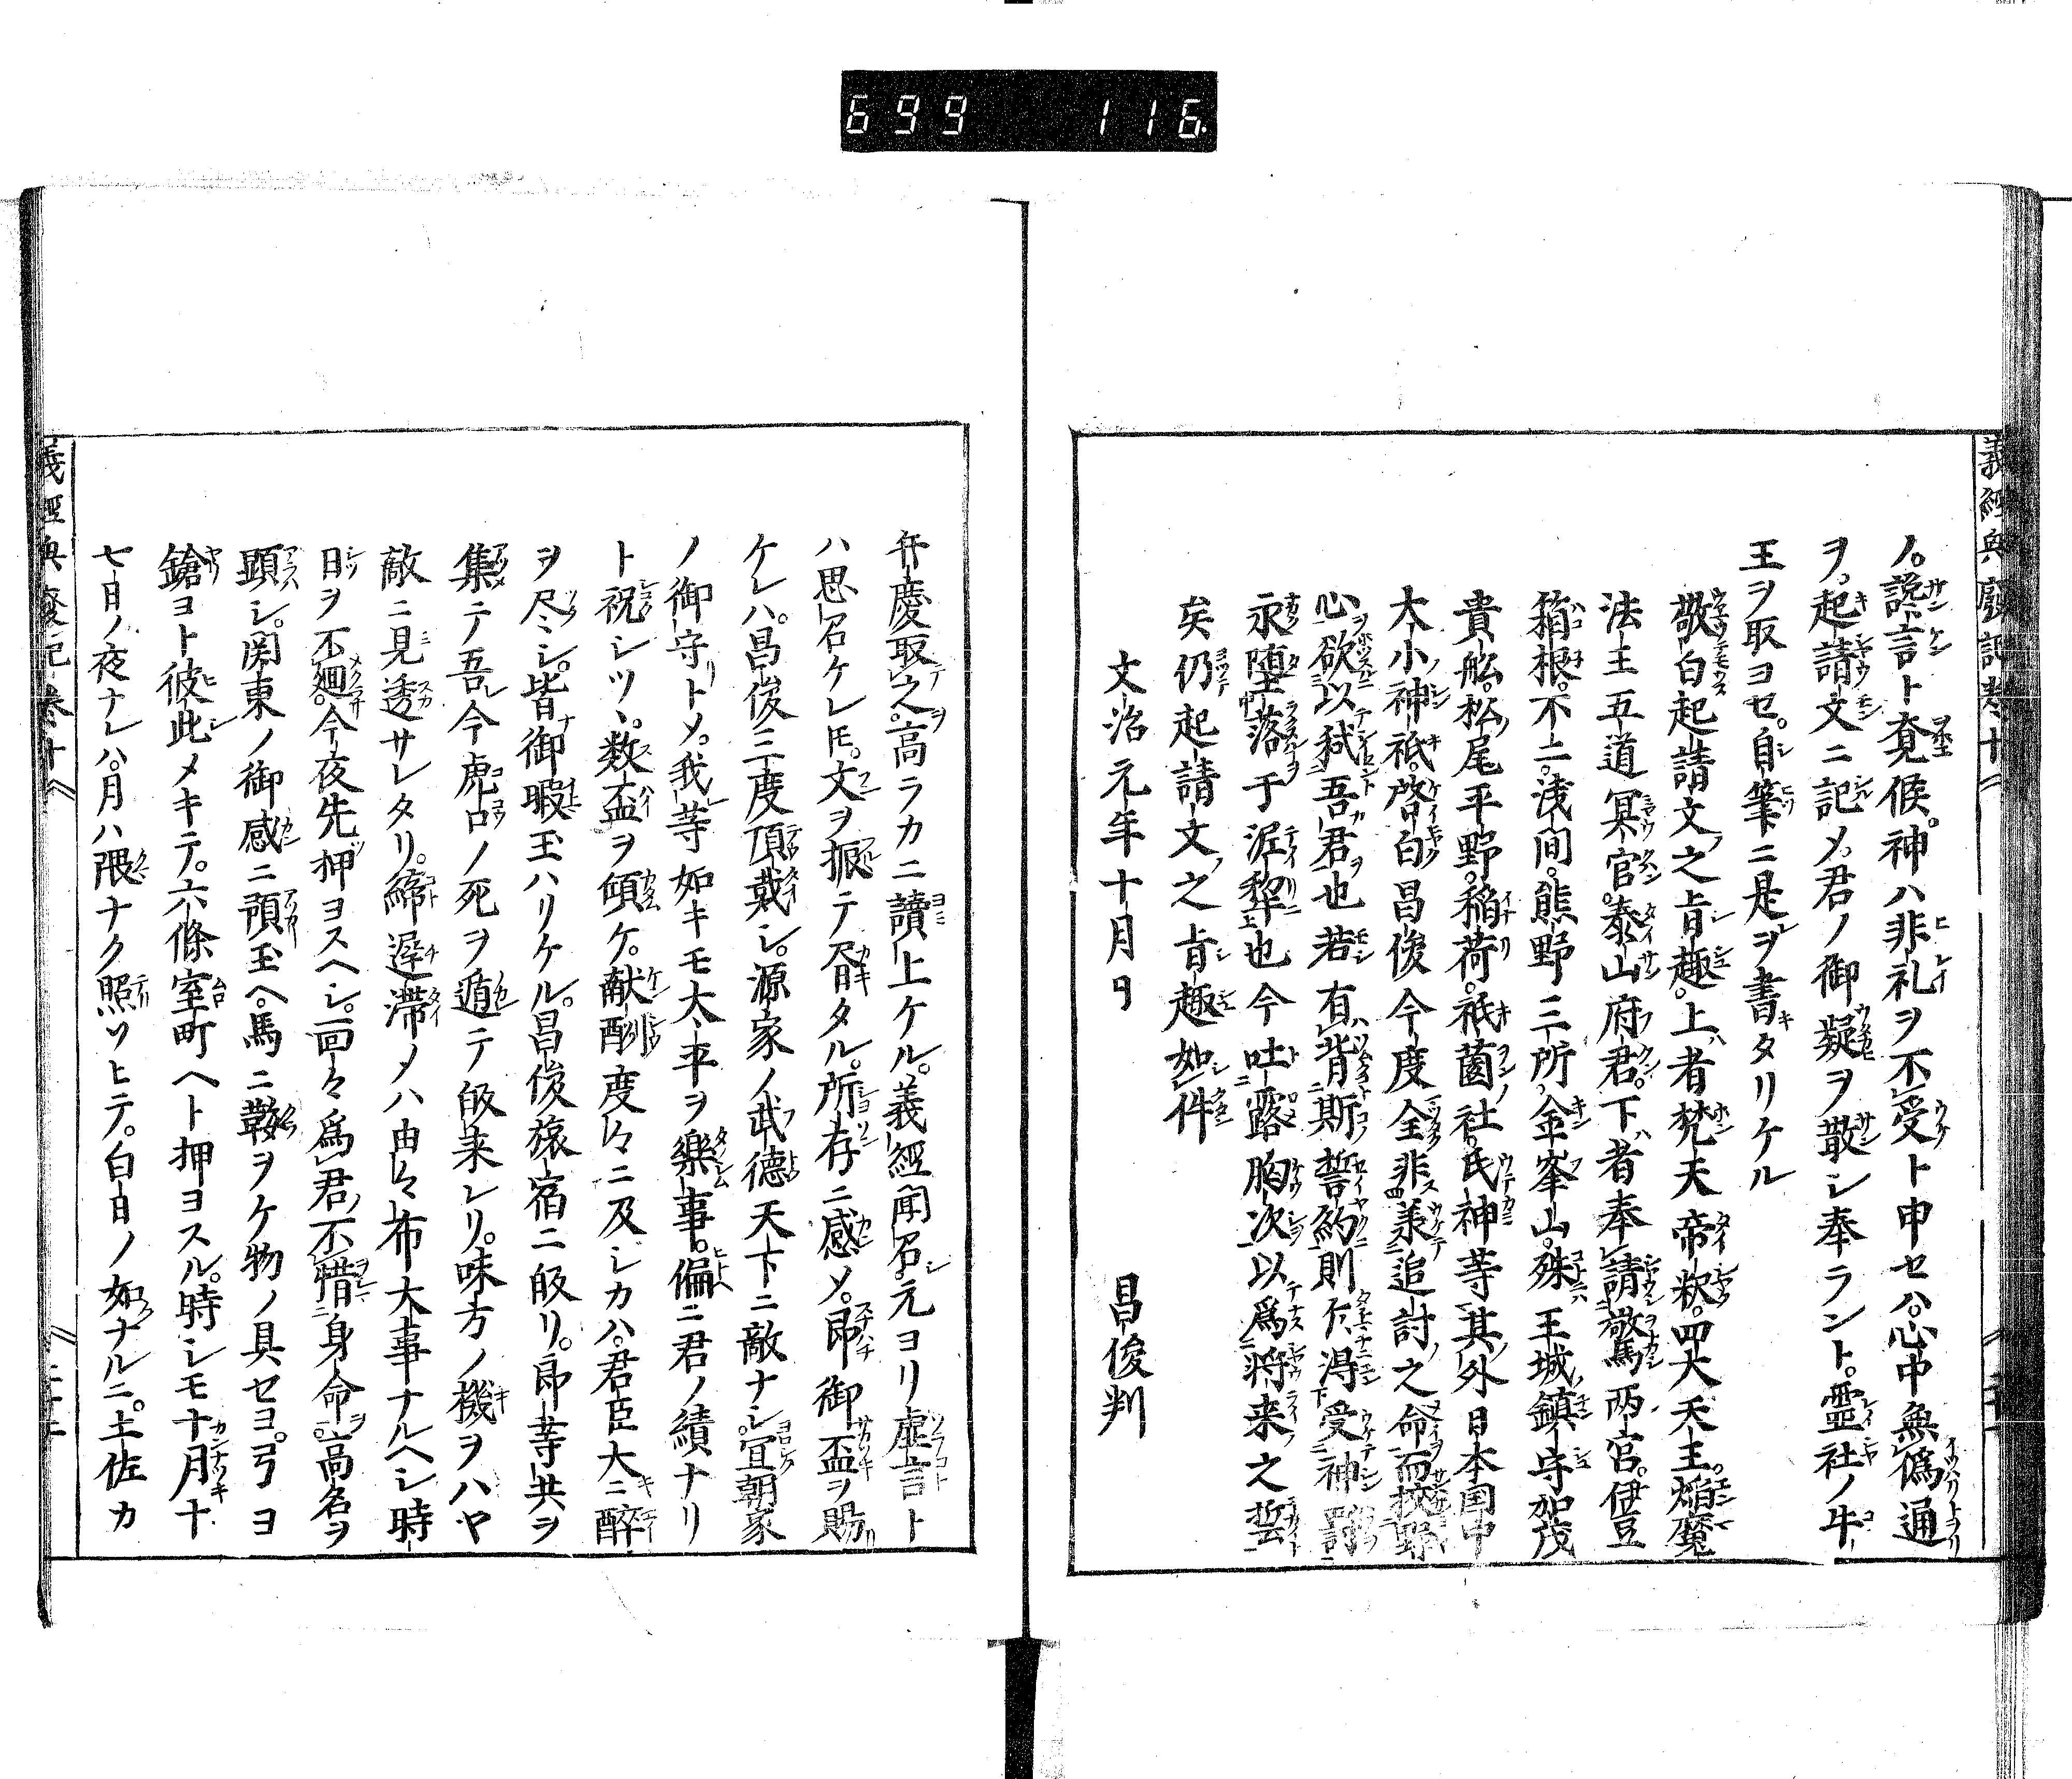 699 116.
義經興廢記卷十
ノ。讒言ト覚候。神ハ非礼ヲ不受ト申セハ。心中無偽通
ヲ。起請文ニ記メ。君ノ御疑ヲ散シ奉ラント。霊社ノ牛
王ヲ取ヨセ。自筆ニ是ヲ書タリケル
敬白起請文之旨趣。上者梵天帝釈。四大天王。焔魔
法王五道冥官。泰山府君。下者奉請驚両宮。伊豆
箱根。不二。浅間。熊野三所金峯山。殊王城鎮守加茂
貴舩。松尾平野。稲荷。祇薗社。氏神等其外日本国中
大小神祇。啓白昌俊今度全非羕追討之命而挾野
心欲以弑吾君也若有背斯誓約則仄得受神罰
永墮落于泥犂也今吐露胸次以爲将来之誓
矣仍起請文之旨趣如件
文治元年十月日
昌俊判
弁慶取之。高ラカニ讀上ケル。義經聞召。元ヨリ虚言ト
ハ思召ケレ𪜈。文ヲ振テ脅タル。所存ニ感メ。即御盃ヲ賜
ケレハ。昌俊三度頂戴シ。源家ノ武徳天下ニ敵ナシ。宜朝家
ノ御守トメ。我等如キモ大平ヲ樂事。偏ニ君ノ績ナリ
ト祝シツヽ。数盃ヲ傾ケ。献酬度々ニ及シカハ。君臣大ニ醉
ヲ尽シ。皆御暇玉ハリケル。昌俊旅宿ニ皈リ。郎等共ヲ
集テ吾今虎口ノ死ヲ遁テ皈来レリ。味方ノ機ヲハヤ
敵ニ見透サレタリ。締遅滞メハ由々布大事ナルヘシ時
日ヲ不廻。今夜先押ヨスヘシ。面々爲君不惜身命。高名ヲ
顕シ。関東ノ御感ニ預玉ヘ。馬ニ鞍ヲケ物ノ具セヨ。弓ヨ
鎗ヨト彼此メキテ。六條室町ヘト押ヨスル。時シモ十月十
七日ノ夜ナレハ。月ハ隈ナク照ソヒテ。白日ノ如ナルニ。土佐カ
義經興廢記卷十